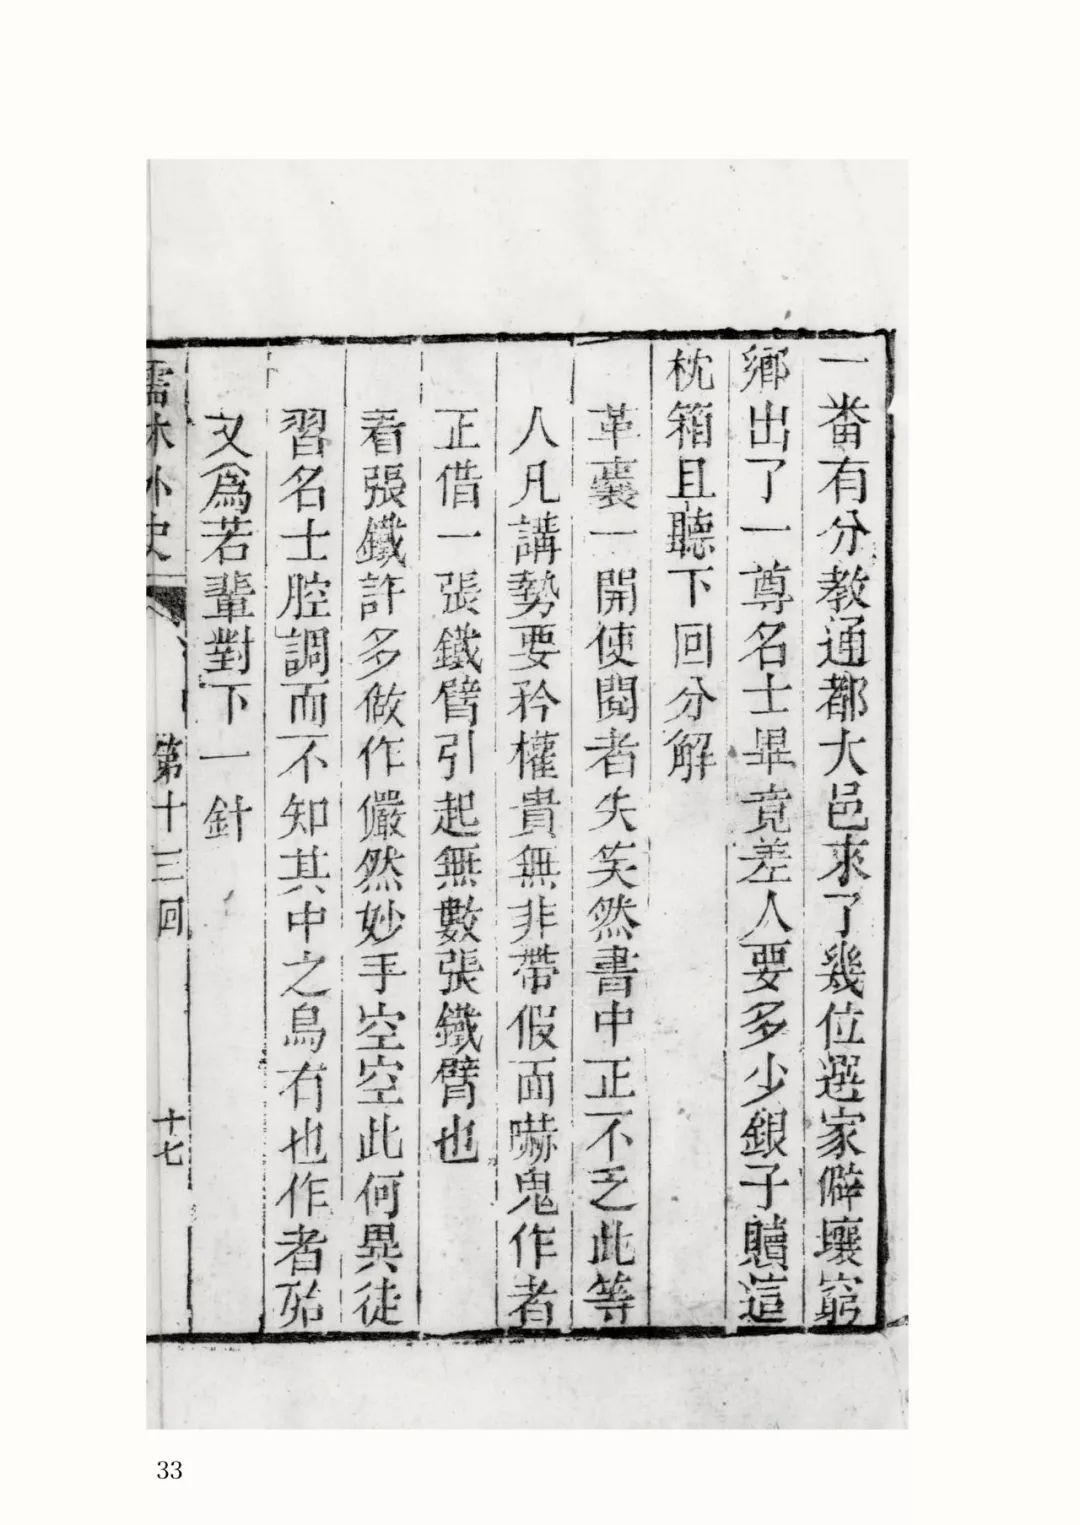 一畨有分教通都大邑來了幾位選家僻壤窮
鄉出了一尊名士畢竟差人要多少銀子贖這
枕箱且聽下回分解
革囊一開使閱者失笑然書中正不乏此等
人凡講勢要矜權貴無非帶假面嚇鬼作者
正借一張鐵臂引起無數張鐵臂也
看張鐵許多做作儼然妙手空空此何異徒
習名士腔調而不知其中之烏有也作者殆
又爲若輩對下一針
儒林外史 第十三回 十七
33